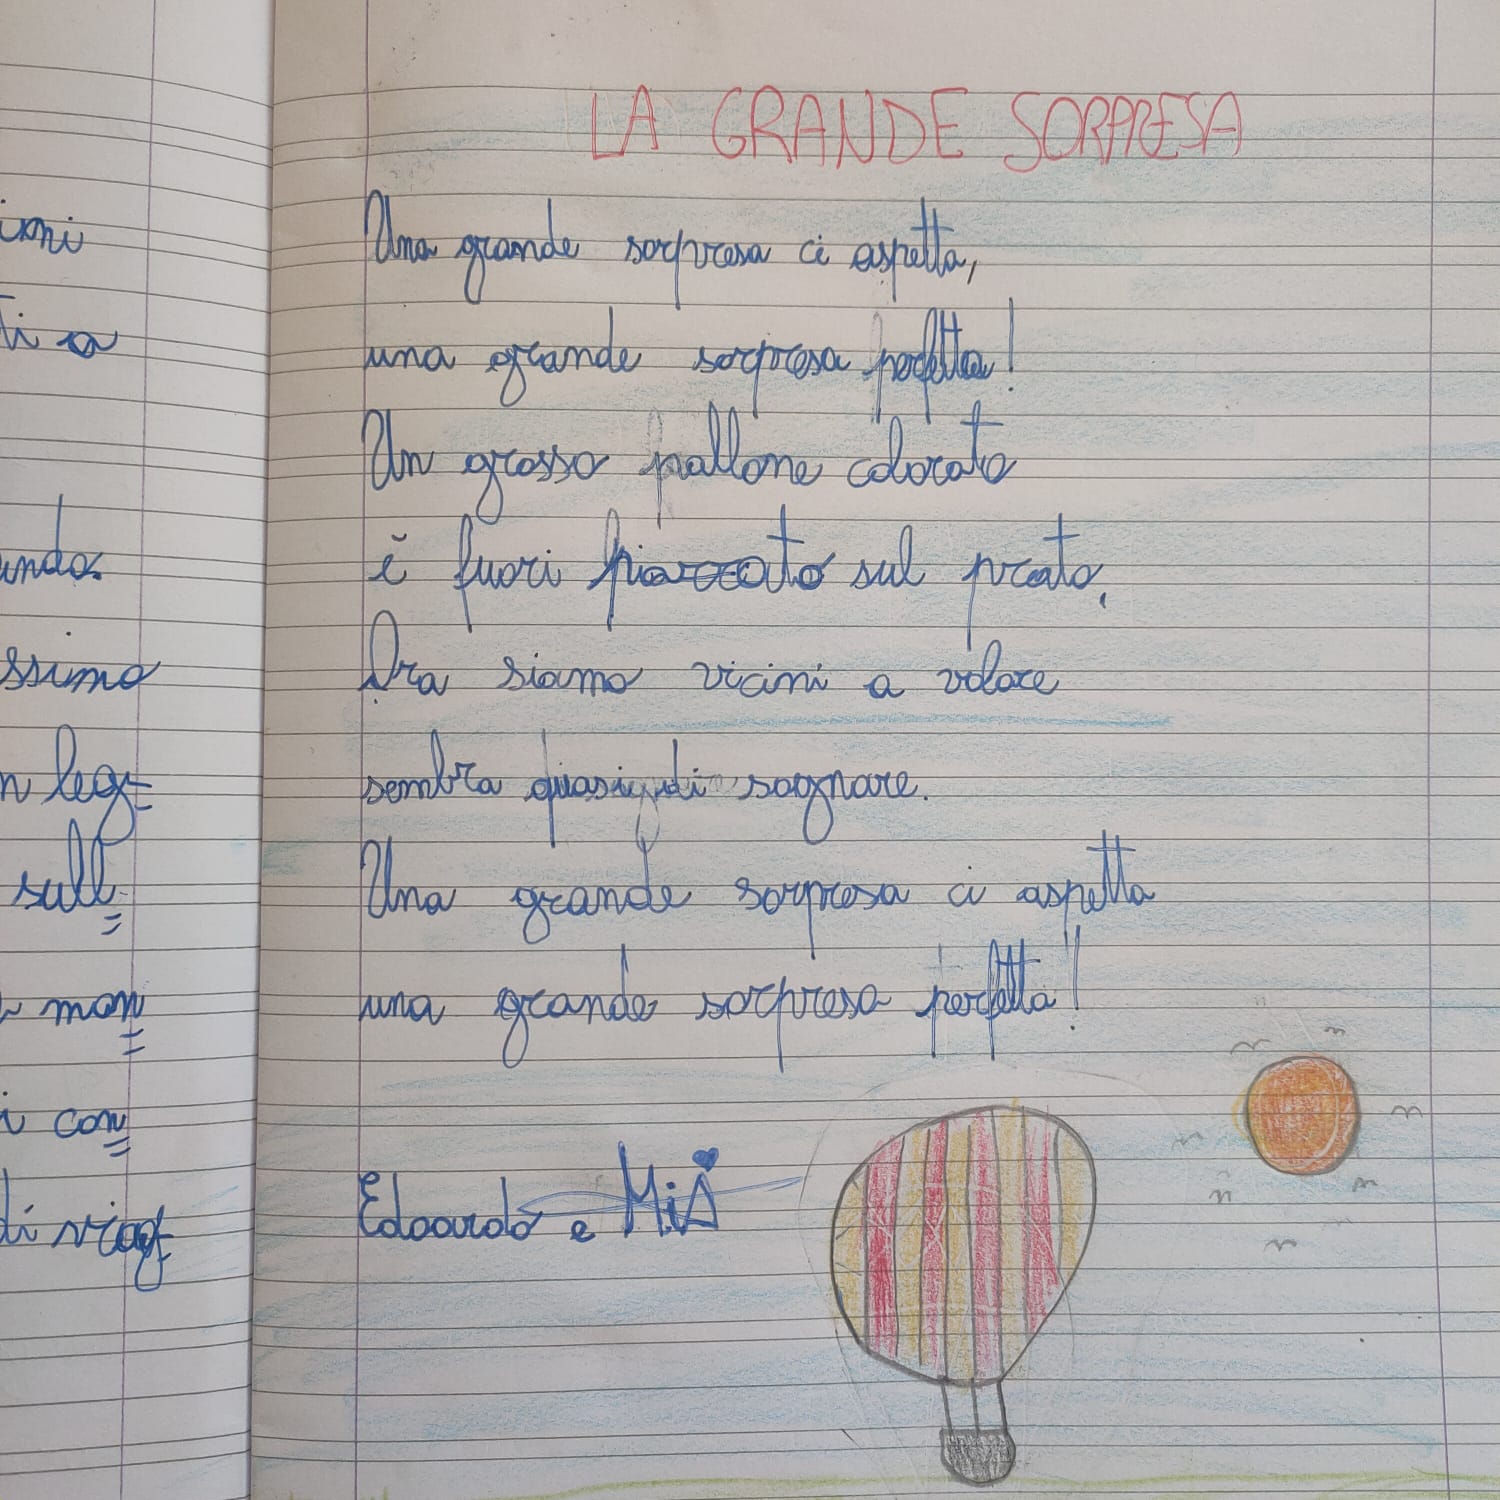 LA GRANDE SORPRESA
Una grande sorpresa ci aspetta,
una grande sorpresa perfetta!
Un grosso pallone colorato
è fuori piazzato sul prato,
Ora siamo vicini a volare
sembra quasi di sognare.
Una grande sorpresa ci aspetta
una grande sorpresa perfetta!
Edoardo e MiA